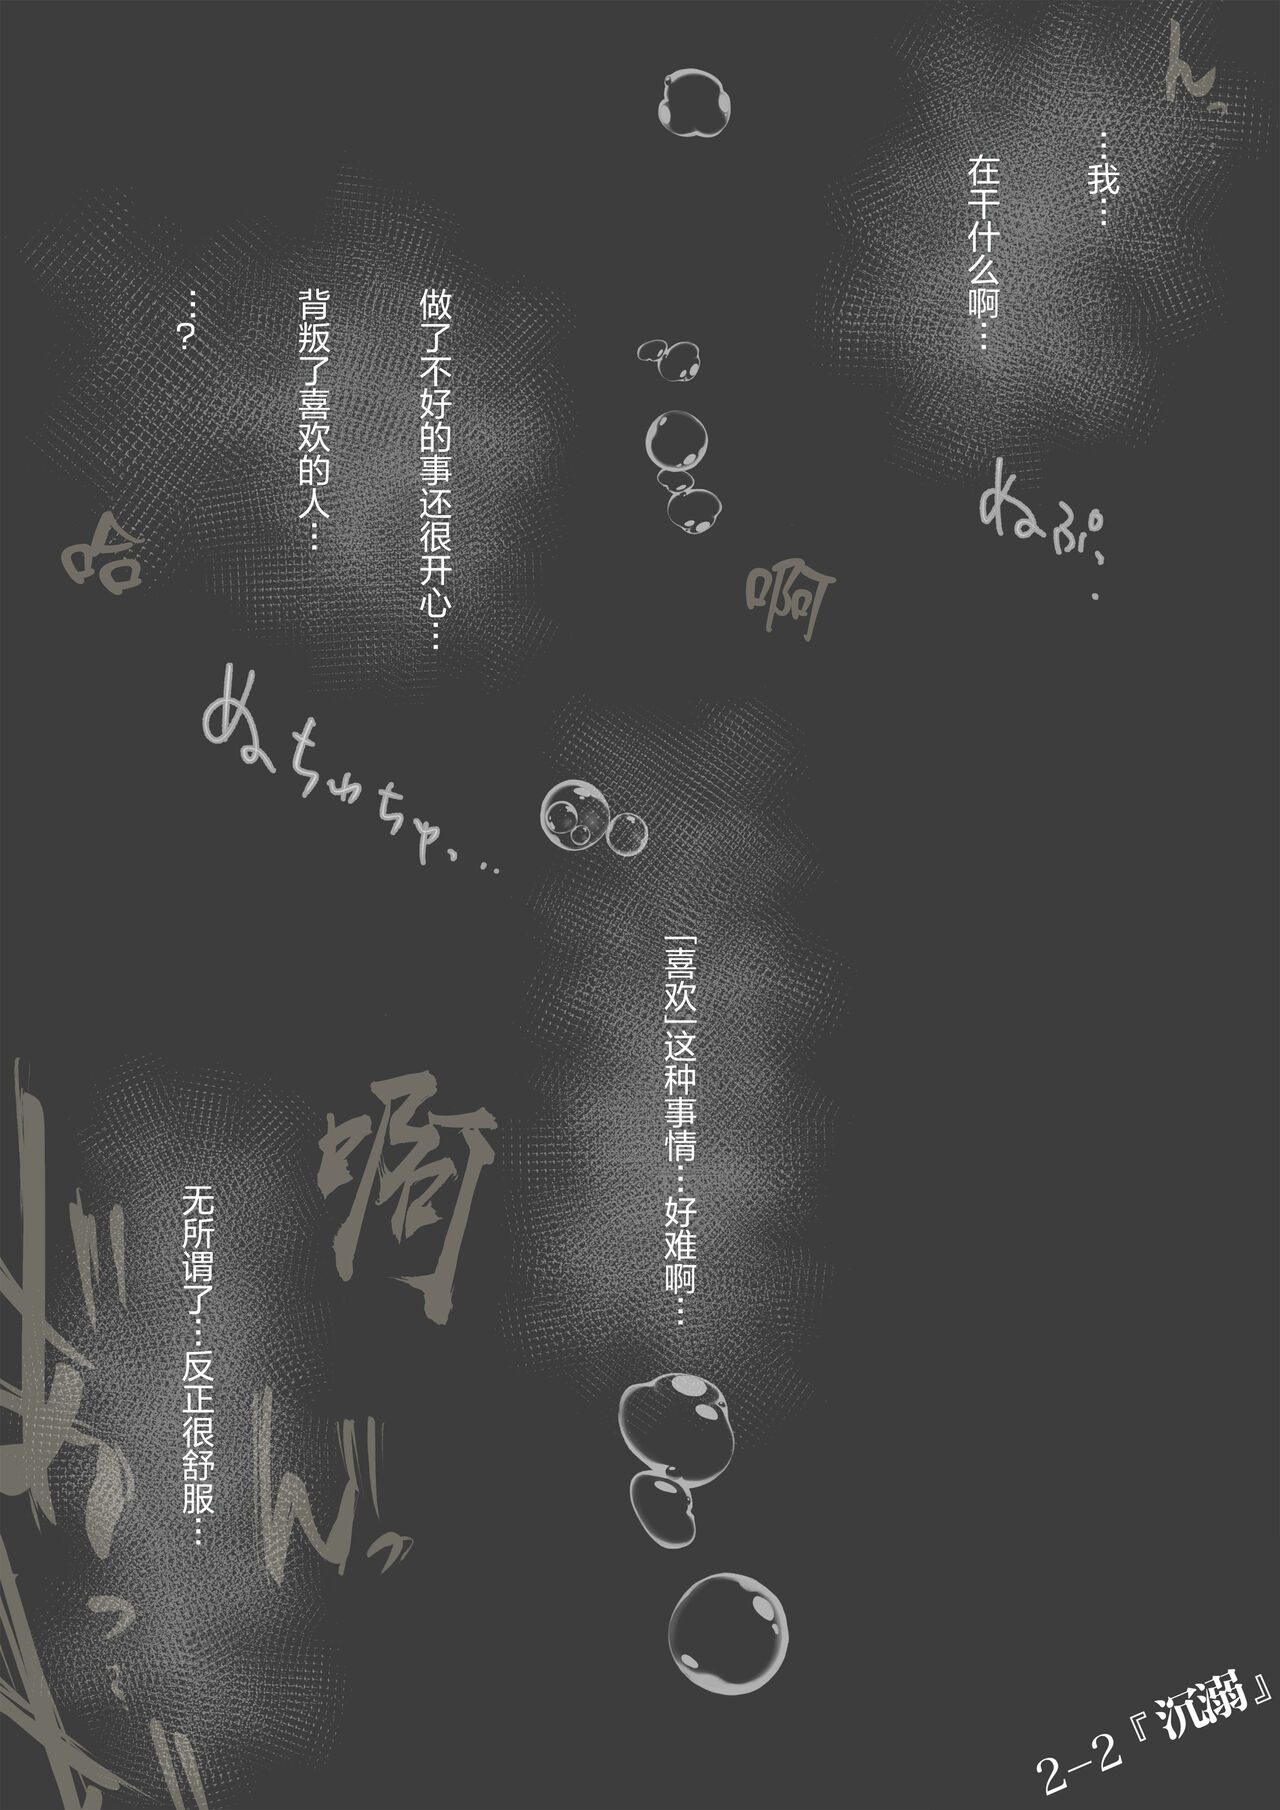 ん、
…我…
在干什么啊…
ぬぷ、…
啊
做了不好的事还很开心…
背叛了喜欢的人…
…?
哈
ぬちゅちゅ、…
「喜欢」这种事情…好难啊…
啊
无所谓了…反正很舒服…
2-2『沉溺』